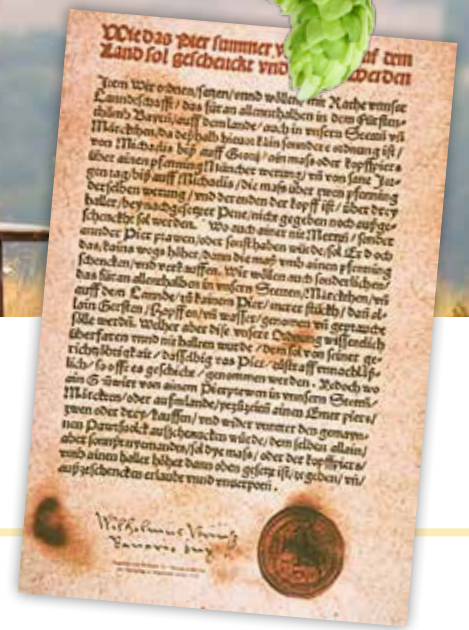 Wie das Pier summer v auf dem
Land sol geschenckt vnd werden
Item Wir ordnen / setzen / vnnd wöllen / mit Rathe vnnser
Lanndtschafft / das für an allennthalben in dem Fürsten-
thůmb Bayrn / auff dem lande / auch in vnsern Stettñ vñ
Märckthen / da deßhalb hieuor kain sonndere ordnung ist /
von Michaelis biß auff Georij / ain mass oder kopffpiers
über ainen pfenning Müncher werung / vñ von sant Jor-
gen tag / biß auff Michaelis / die mass über zwen pfenning
derselben werung / vnd derenden der kopff ist / über drey
haller / bey nachgesetzter Pene / nicht gegeben noch außge-
schenckht sol werden. Wo auch ainer nit Mertzñ / sonder
annder Pier prawen / oder sonst haben würde / sol Er doch
das / kains wegs höher / dann die mass vmb ainen pfenning
schencken / vnd verkauffen. Wir wöllen auch sonderlichen /
das für an allenthalben in vnsern Stetten / Märckthen / vñ
auff dem Lannde / zů kainem Pier / merer stückh / dañ al-
lain Gersten / Hopffen / vñ wasser / genomen vñ gepraucht
sölle werdñ. Welher aber dise vnsere Ordnung wissenlich
überfaren vnnd nit hallten wurde / dem sol von seiner ge-
richtzöbrigkait / dasselbig vas Pier / zůstraff vnnachläß-
lich / so offt es geschicht / genommen werden. Jedoch wo
ain Güwirt von ainem Pierprewen in vnnsern Stettñ /
Märckten / oder aufm lande / yezůzeitñ ainen Emer piers /
zwen oder drey / kauffen / vnd wider vnnter den gemayn-
nen Pawrsuolck ausschenncken würde / dem selben allain /
aber sonnst nyemandts / sol dye mass / oder der kopffpiers /
vmb ainen haller höher dann oben gesetzt ist / ze geben / vñ /
außzeschencken erlaubt vnnd vnuerpotñ.